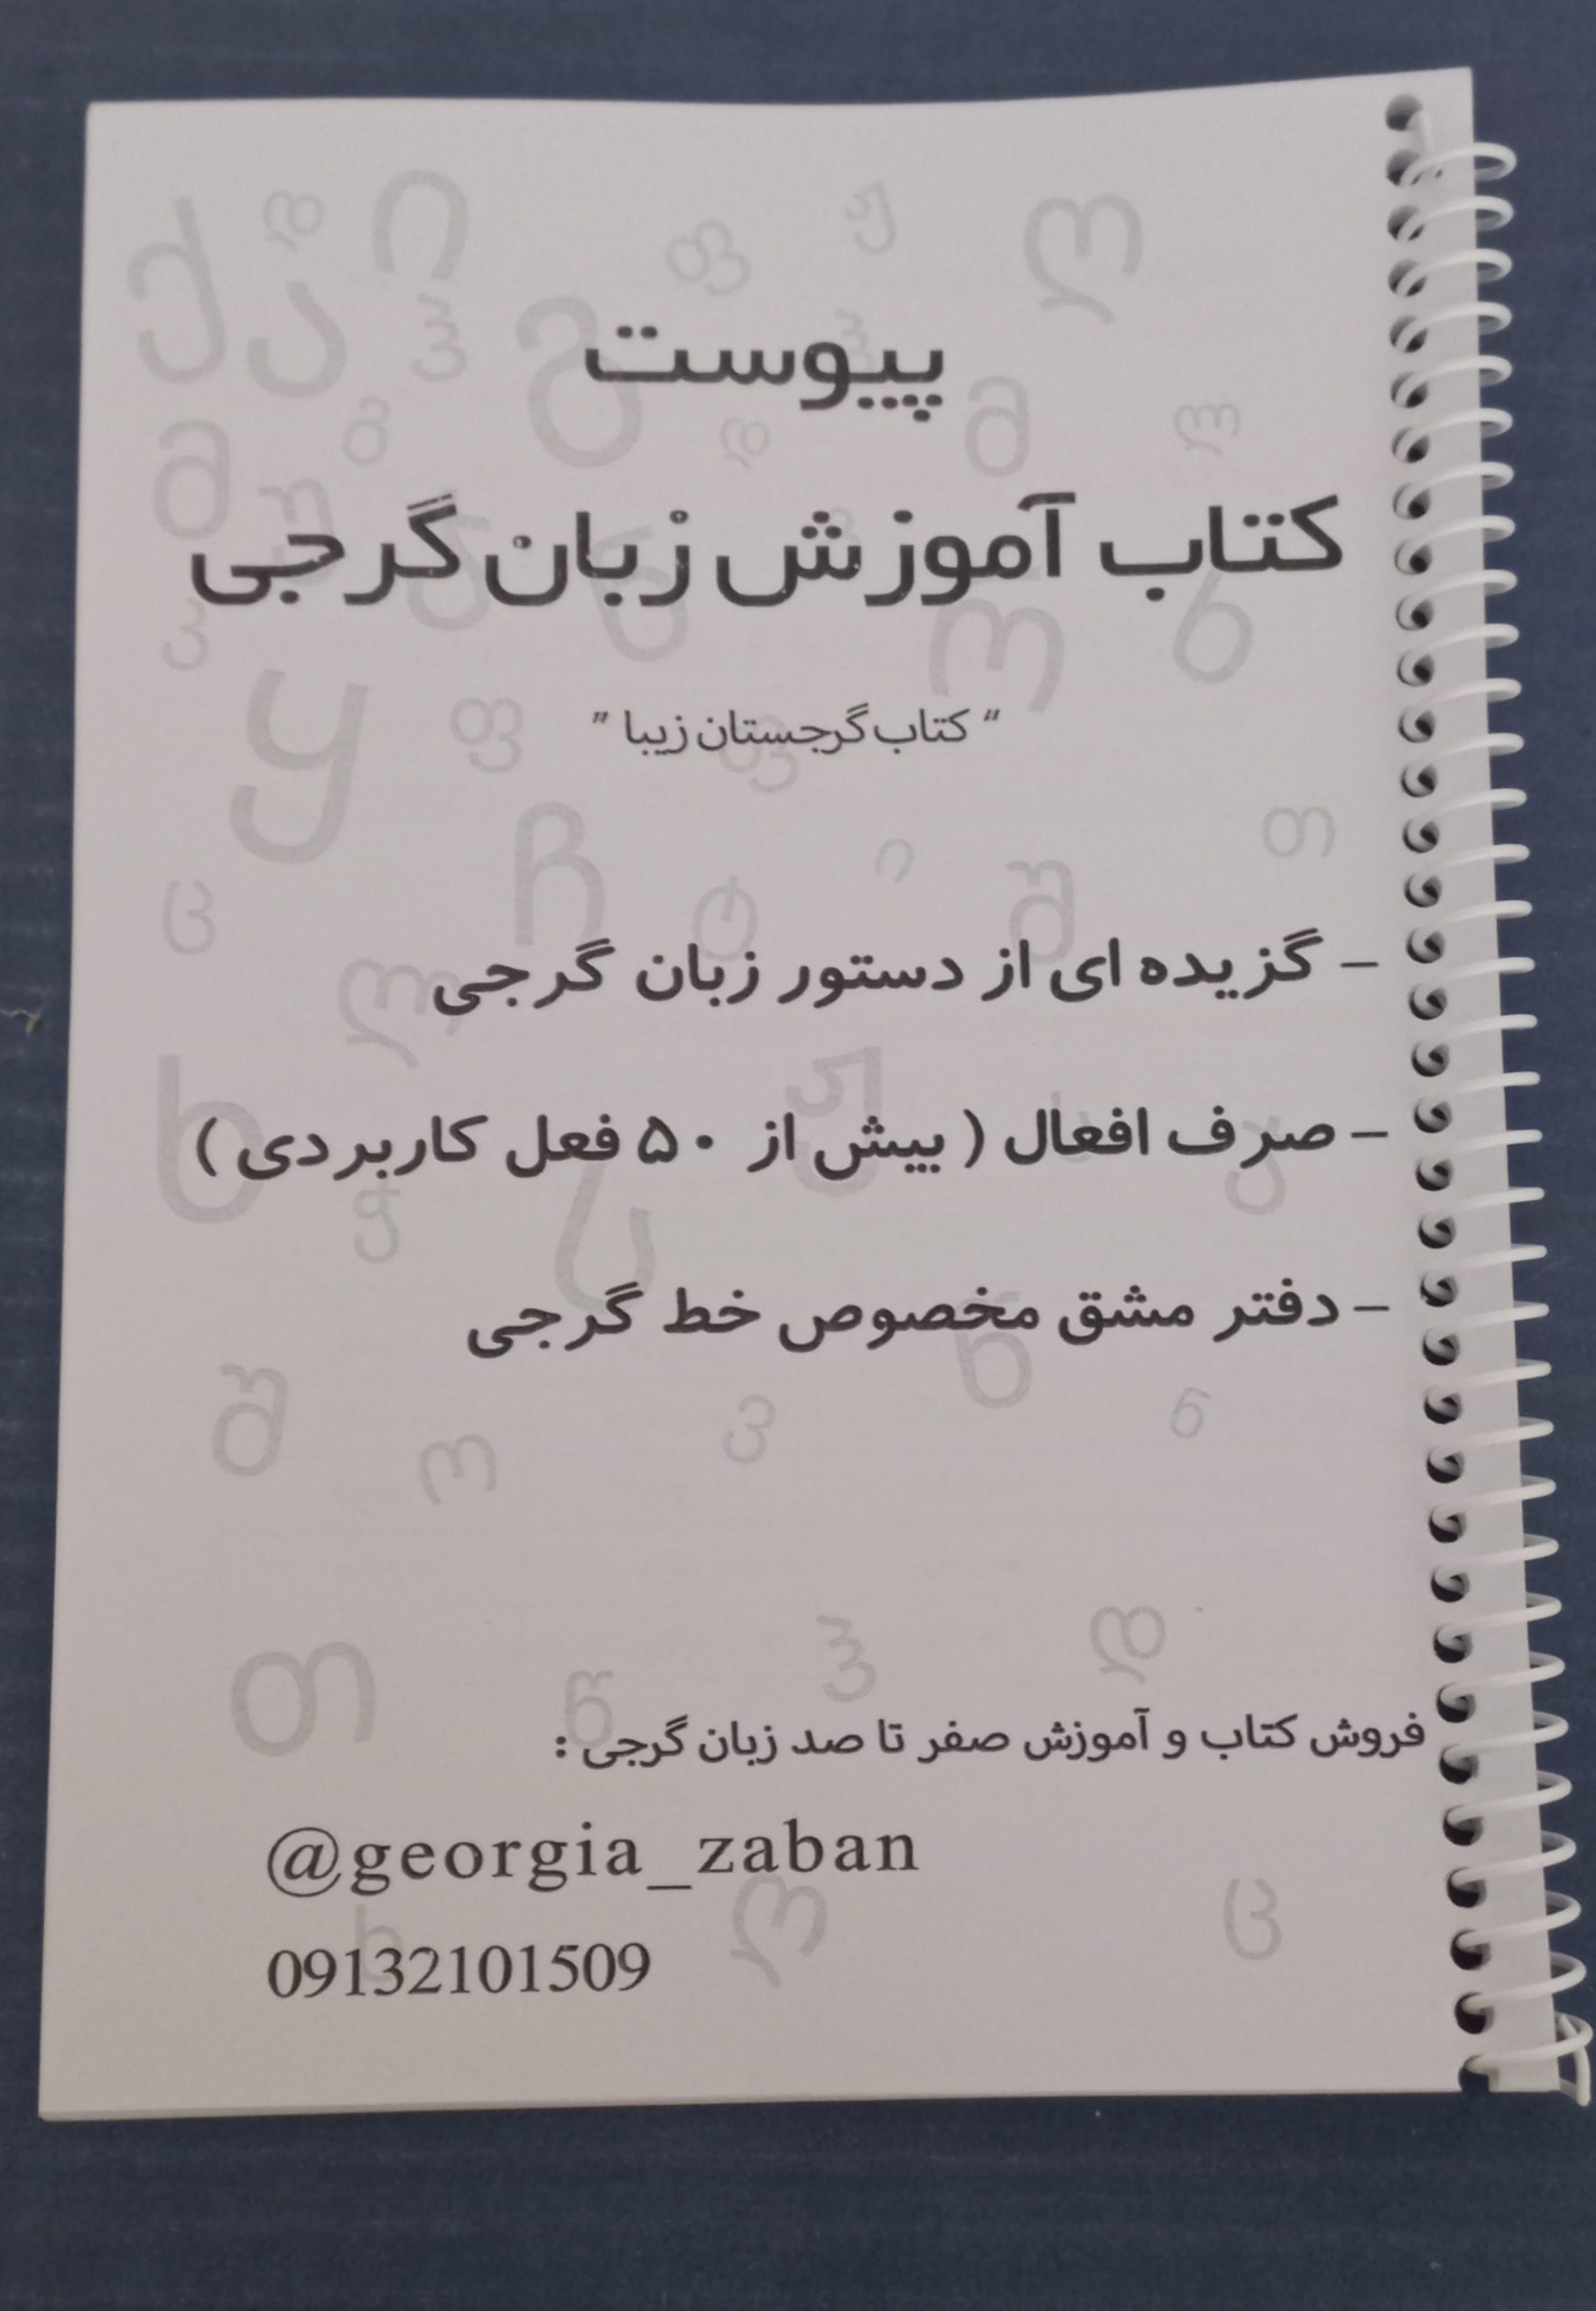 پیوست
کتاب آموزش زبان گرجی
“ کتاب گرجستان زیبا ”
- گزیده ای از دستور زبان گرجی
- صرف افعال ( بیش از ۵۰ فعل کاربردی )
- دفتر مشق مخصوص خط گرجی
فروش کتاب و آموزش صفر تا صد زبان گرجی :
@georgia_zaban
09132101509